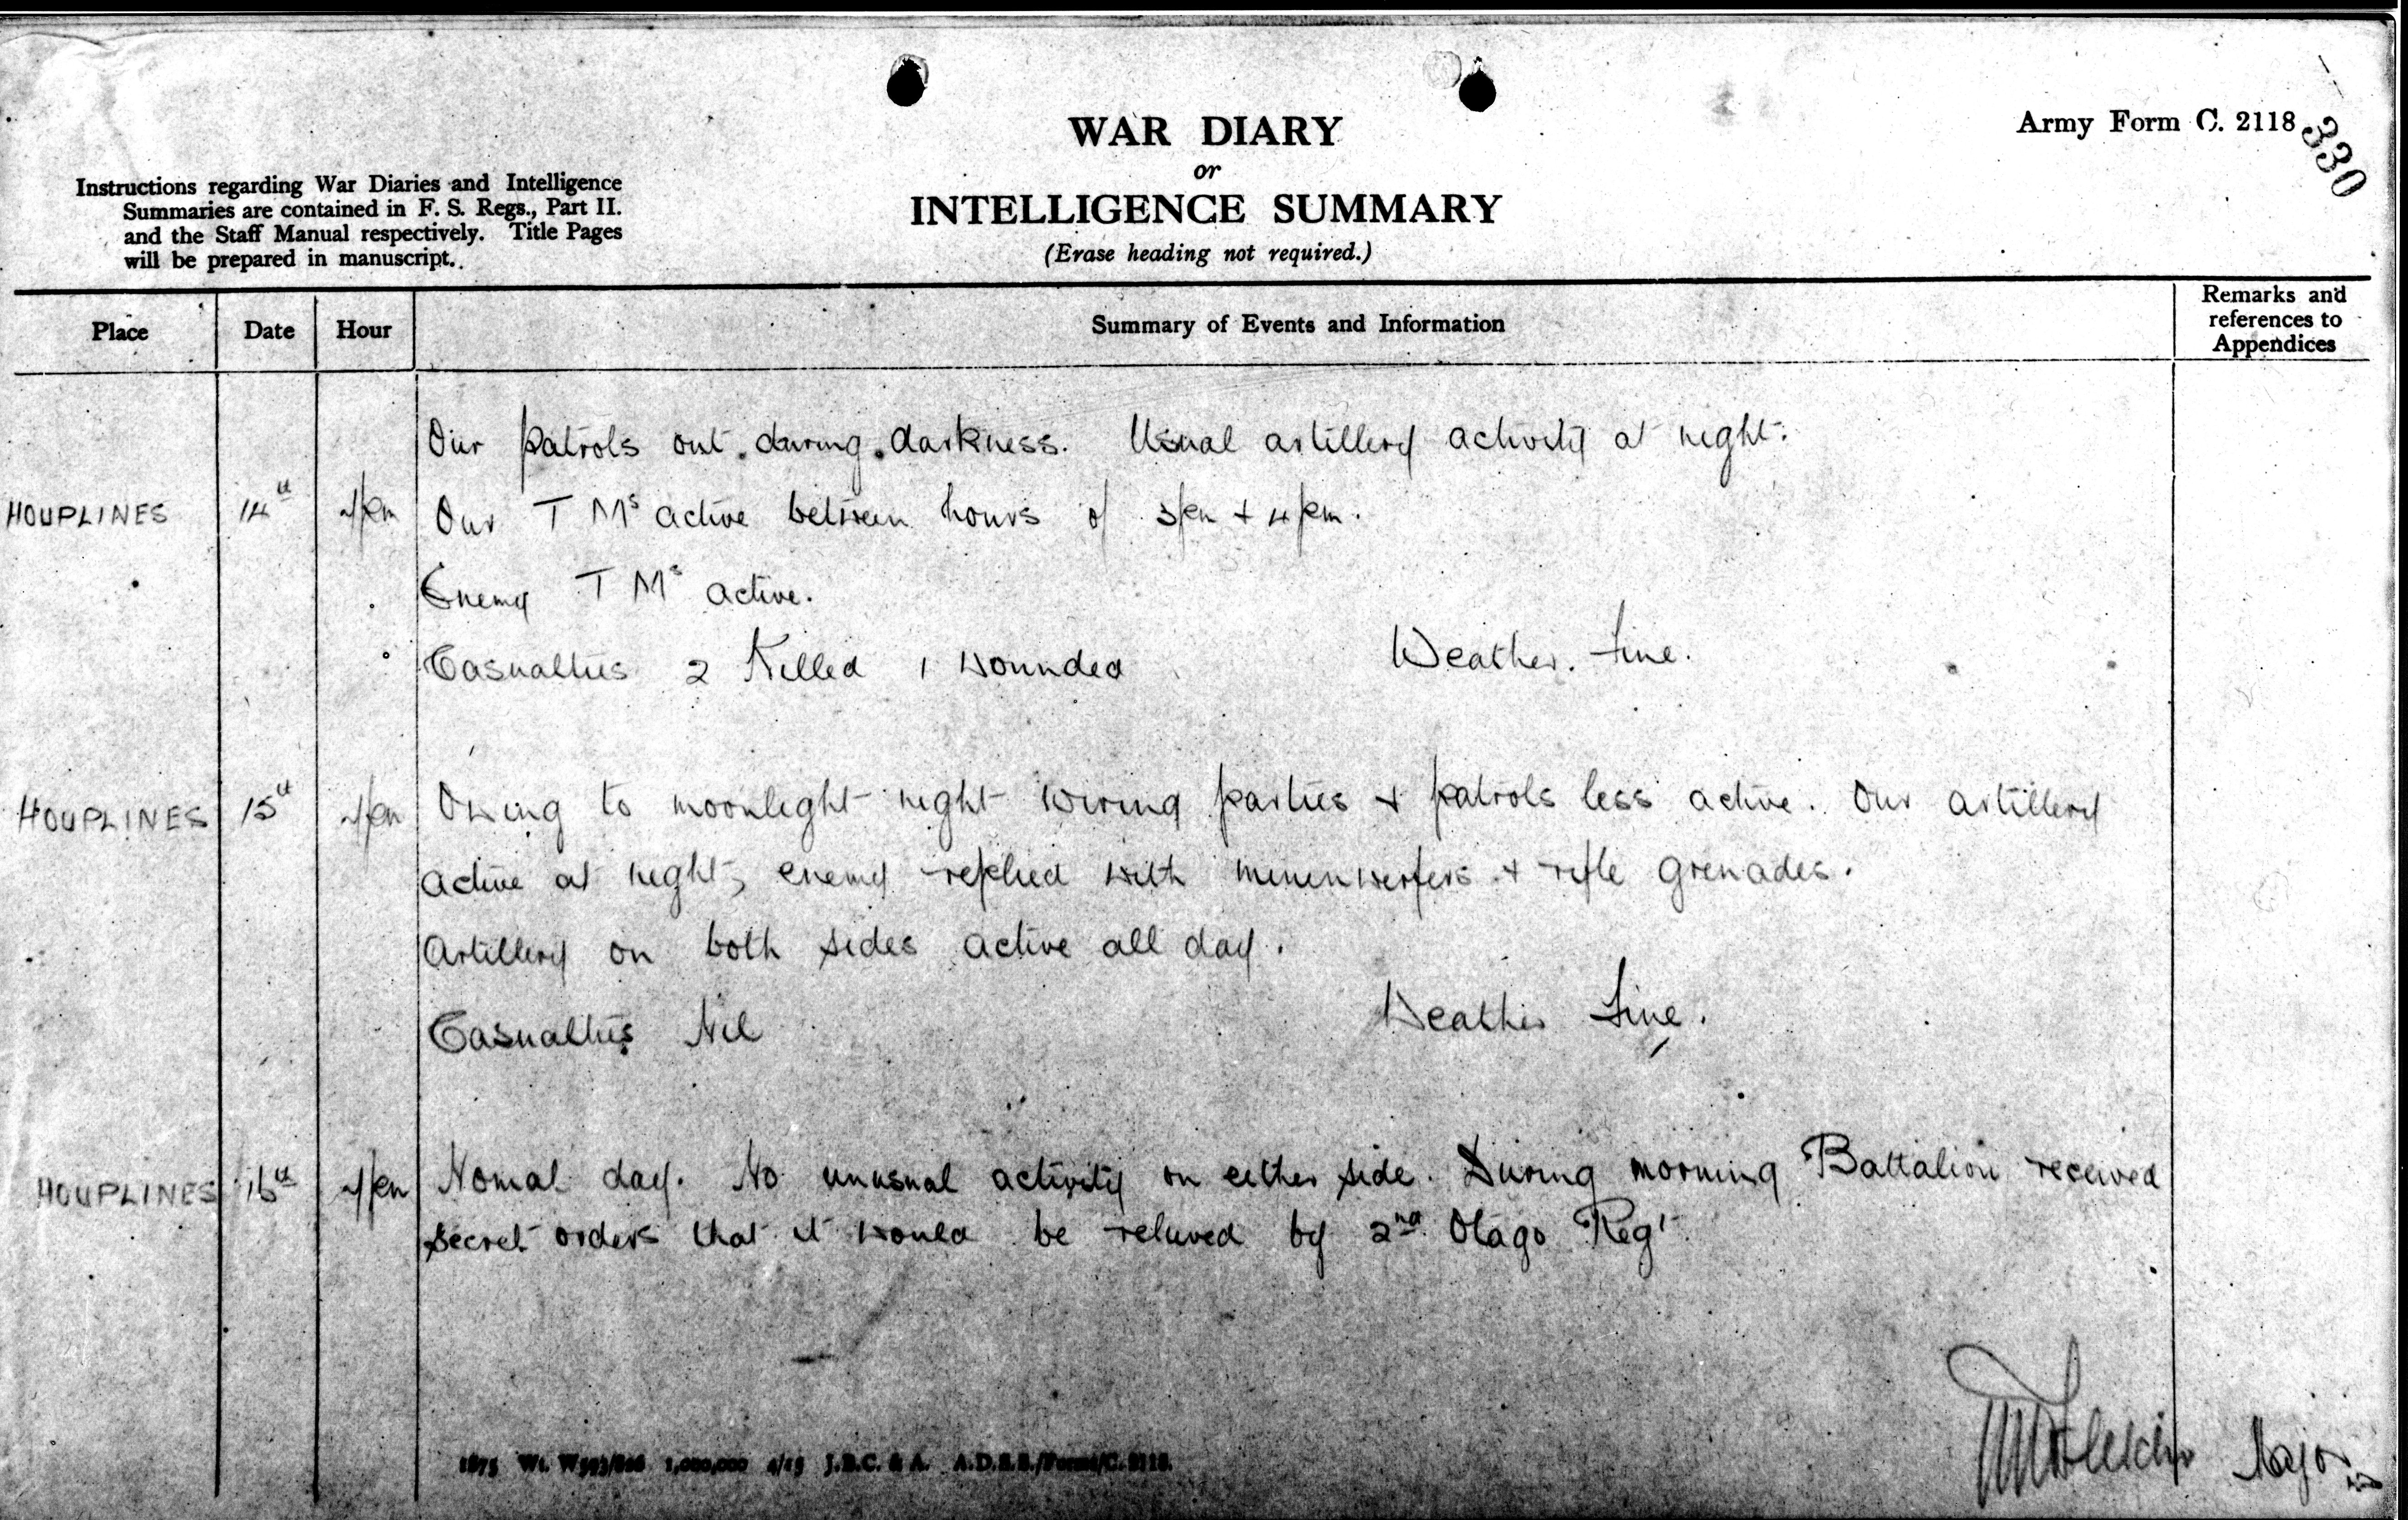 WAR DIARY
or
INTELLIGENCE SUMMARY
(Erase heading not required.)
Army Form C. 2118
330
Instructions regarding War Diaries and Intelligence
Summaries are contained in F. S. Regs., Part II.
and the Staff Manual respectively. Title Pages
will be prepared in manuscript.
Place Date Hour Summary of Events and Information Remarks and references to Appendices
Our patrols out during darkness. Usual artillery activity at night.
HOUPLINES 14th Our T Ms active between hours of 3pm + 4pm.
Enemy T Ms active.
Casualties 2 Killed 1 wounded Weather. Fine.
HOUPLINES 15th Owing to moonlight night wiring parties + patrols less active. Our artillery
active at night, enemy replied with minenwerfers + rifle grenades.
Artillery on both sides active all day.
Casualties Nil Weather Fine.
HOUPLINES 16th Nomal day. No unusual activity on either side. During morning Battalion received
secret orders that it would be relieved by 2nd Otago Regt
Major
1875 Wt. W593/826 1,000,000 4/15 J.B.C. & A. A.D.S.S./Forms/C. 2118.